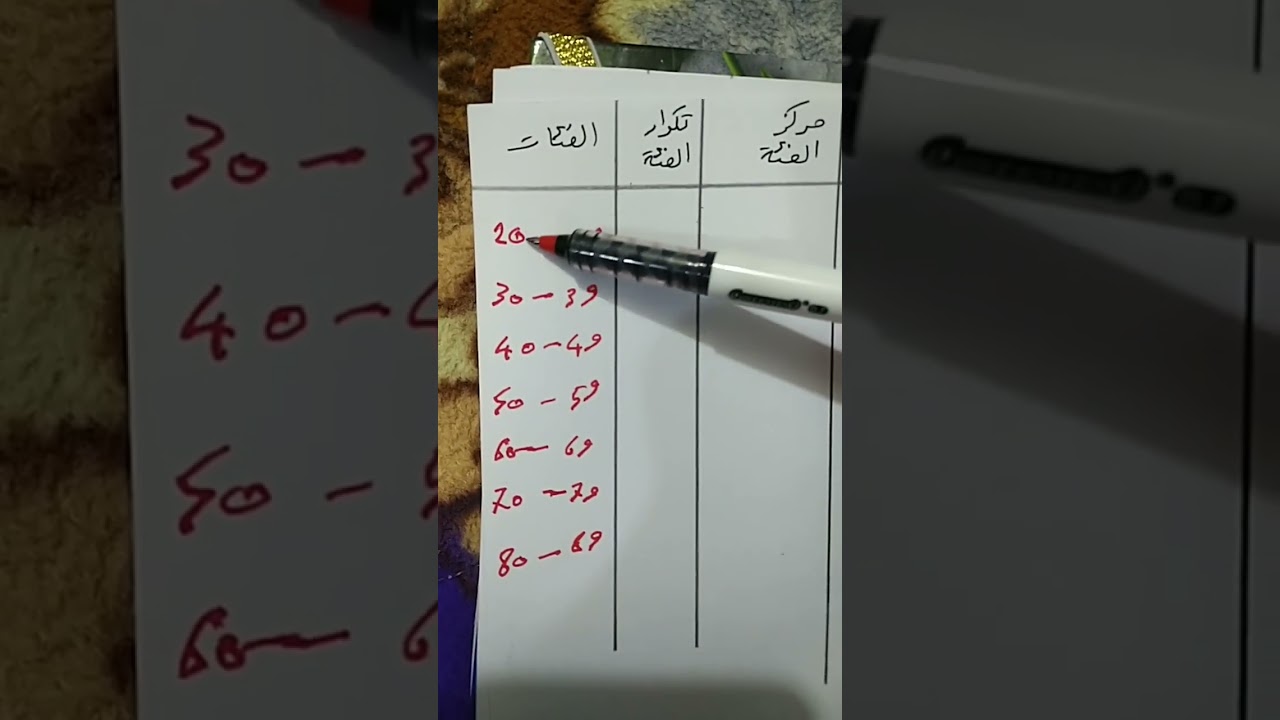 الفئات
تكرار الفئة
مركز الفئة
20
30 - 39
40 - 49
50 - 59
60 - 69
70 - 79
80 - 89